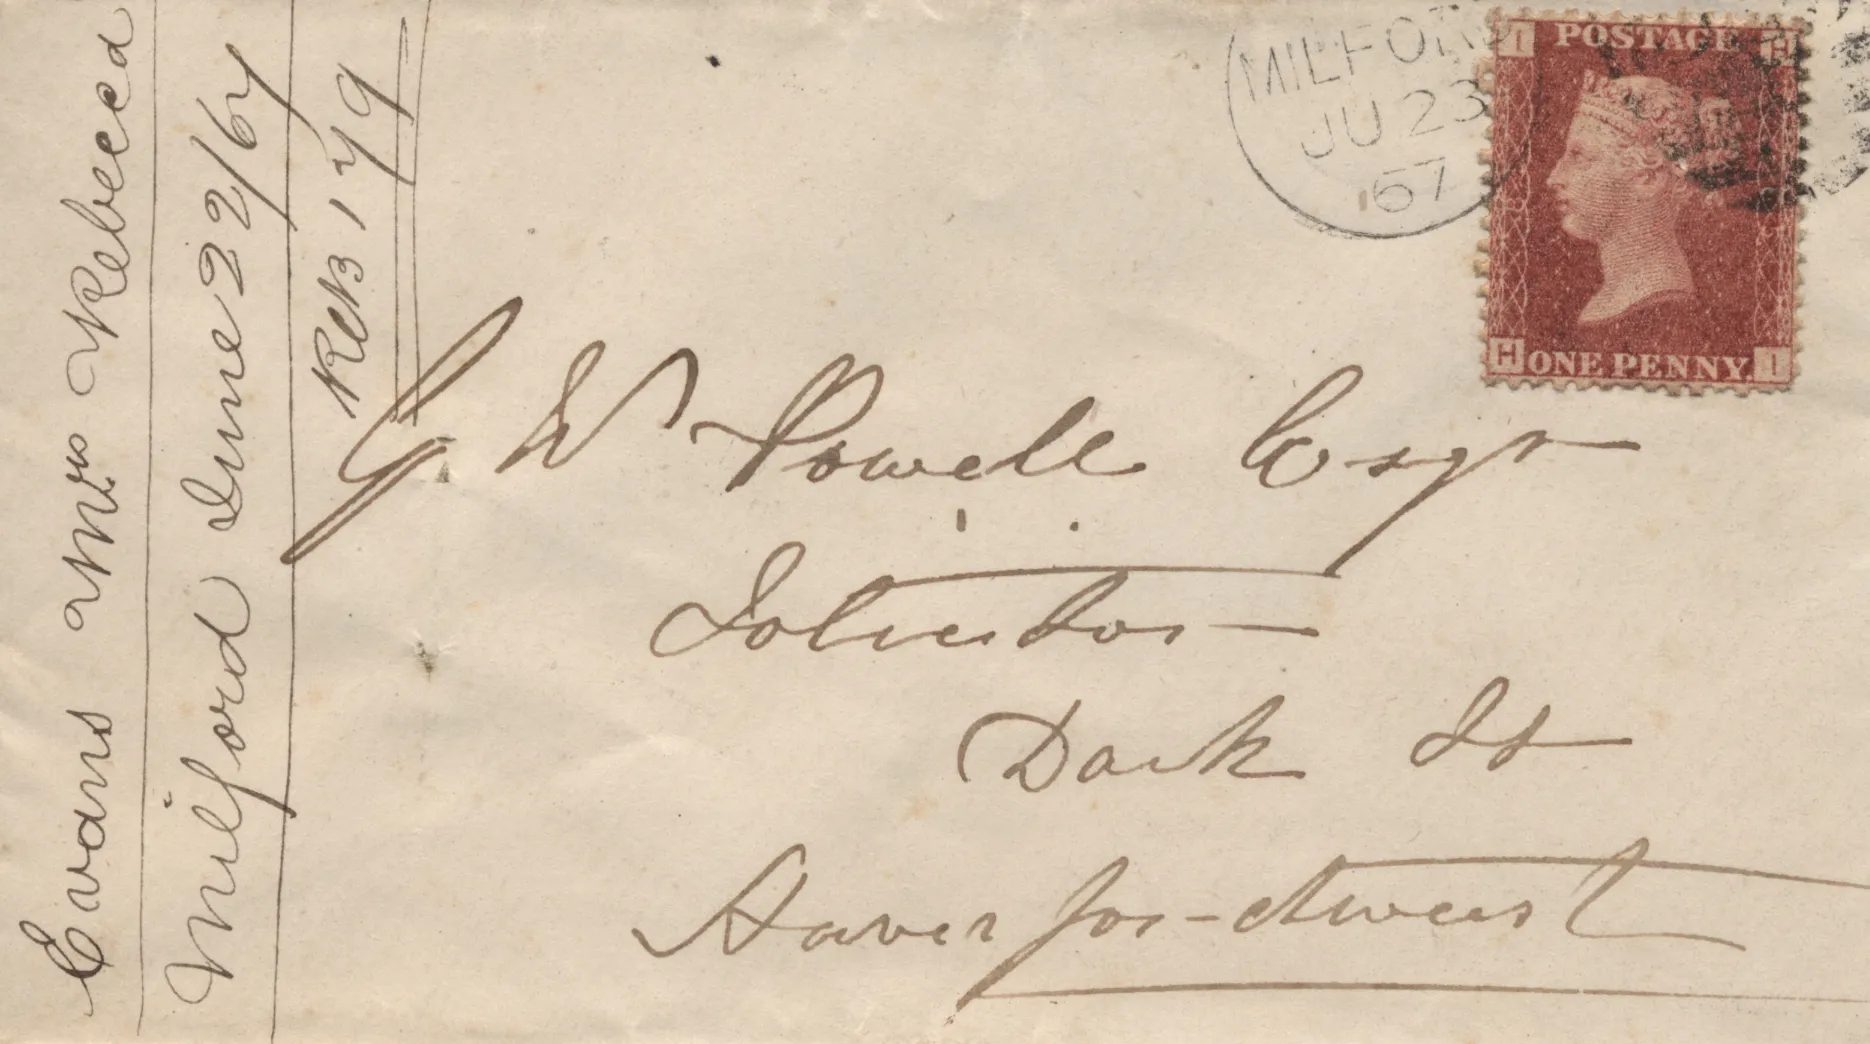 Evans Mrs Rebecca
Milford June 22/67
REB 179
MILFORD
JU 23
67
I POSTAGE H
H ONE PENNY. I
G W Powell Esqr
Solicitor
Dark St
Haverfordwest